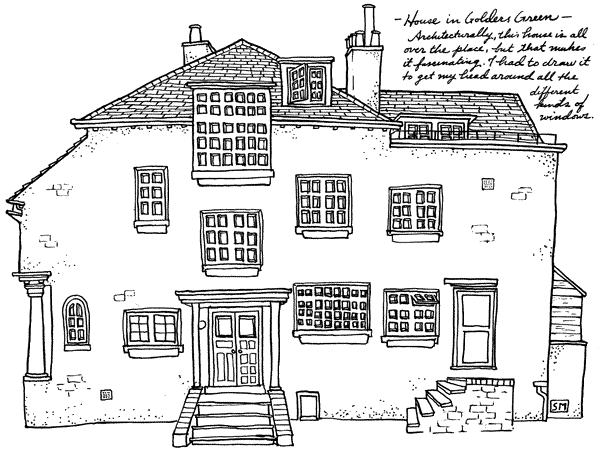 - House in Golders Green -
Architecturally, this house is all
over the place, but that makes
it fascinating. I had to draw it
to get my head around all the
different
kinds of
windows.
SM